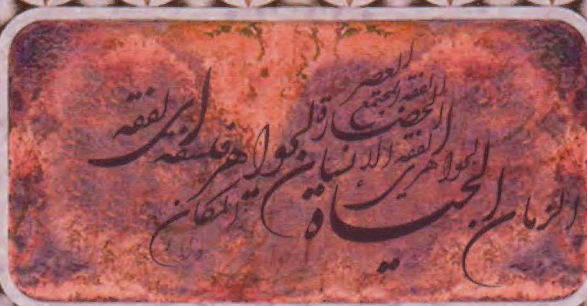 العصر
الفقه المجتمع
الحضارة
الجواهري الفقه الإنسان الجواهر فلسفة الفقه
الزمان الحياة المكان